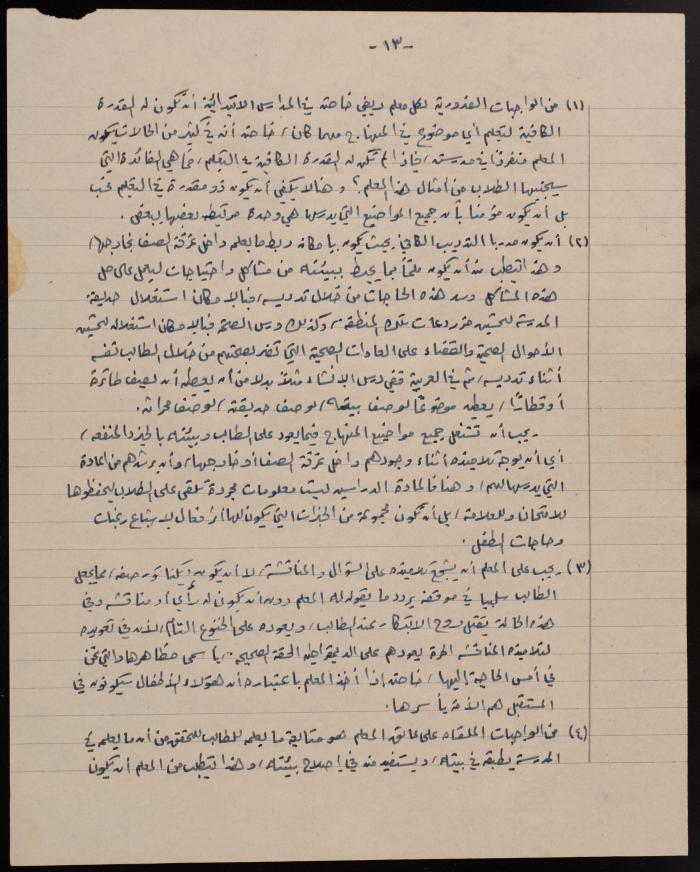 -١٣-
(١) من الواجبات الضرورية لكل معلم ريفي خاصة في المدارس الابتدائية أن تكون له المقدرة
الكافية لتعليم أي موضوع في المنهاج مهما كان، خاصة أنه في كثير من الحالات يكون
المعلم منفرداً في مدرسته، فإذا لم تكن له المقدرة الكافية في التعليم، فما هي الفائدة التي
سيجنيها الطلاب من أمثال هذا المعلم؟ وهنا لا يكفي أن يكون ذو مقدرة في التعليم فحسب
بل أن يكون مؤمناً بأن جميع المواضيع التي يدرسها هي وحدة مرتبطة بعضها ببعض.
(٢) أن يكون مدرباً التدريب الكافي بحيث يكون بإمكانه ربط ما يعلمه داخل غرفة الصف بخارجها،
وهذا يتطلب منه أن يكون ملماً بما يحيط ببيئته من مشاكل واحتياجات ليعمل على حل
هذه المشاكل وسد هذه الحاجات من خلال تدريسه، فبالإمكان استغلال حديقة
المدرسة لتحسين مزروعات تلك المنطقة، وكذلك درس الصحة فبالإمكان استغلاله لتحسين
الأحوال الصحية والقضاء على العادات الصحية التي تضر بصحتهم من خلال الطالب نفسه
أثناء تدريسه، ثم في العربية ففي درس الإنشاء مثلاً بدلاً من أن يعطيه أن يصف طائرة
أو قطاراً، يعطيه موضوعاً لوصف بيته، لوصف حديقته، لوصف محراثه.
يجب أن تستغل جميع مواضيع المنهاج فيما يعود على الطالب وبيئته بالخير والمنفعه،
أي أن يوجه تلاميذه أثناء وجودهم داخل غرفة الصف أو خارجها، وأن يرشدهم من المادة
التي يدرسها لهم، وهنا فالمادة الدراسية ليست معلومات مجردة تلقى على الطلاب ليحفظوها
للامتحان وللعلامة، بل أن تكون مجموعة من الخبرات التي يكون لها أثر فعال لإشباع رغبات
وحاجات الطفل.
(٣) يجب على المعلم أن يشجع تلاميذه على السؤال والمناقشة، لا أن يكون ديكتاتور صفه، مما يجعل
الطالب سلبياً في موقفه يردد ما يقوله له المعلم دون أن يكون له رأي أو مناقشه وفي
هذه الحالة يقتل روح الابتكار عند الطالب، ويعوده على الخنوع التام، لأن في تعويده
لتلاميذه المناقشه الحرة يعودهم على الديمقراطيه الحقة الصحيحه بأسمى مظاهرها والتي نحن
في أمس الحاجة إليها، خاصة إذا أخذ المعلم باعتباره أن هؤلاء الأطفال سيكونون في
المستقبل هم الأمة بأسرها.
(٤) من الواجبات الملقاه على عاتق المعلم هو متابعة ما يعلمه للطالب للتحقق من أن ما يعلمه في
المدرسة يطبقه في بيته، ويستفيد منه في إصلاح بيئته، وهذا يتطلب من المعلم أن يكون